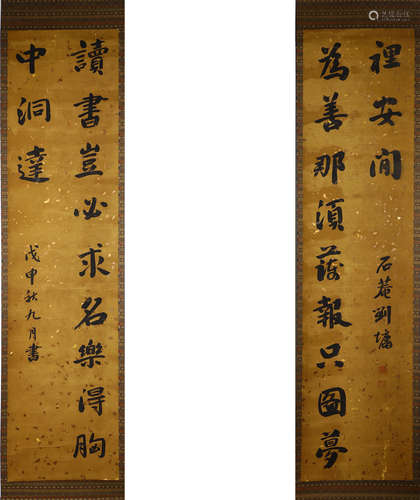 讀書豈必求名樂得胸
中洞達
戊申秋九月書
為善那須獲報只圖夢
裡安閒
石菴劉墉